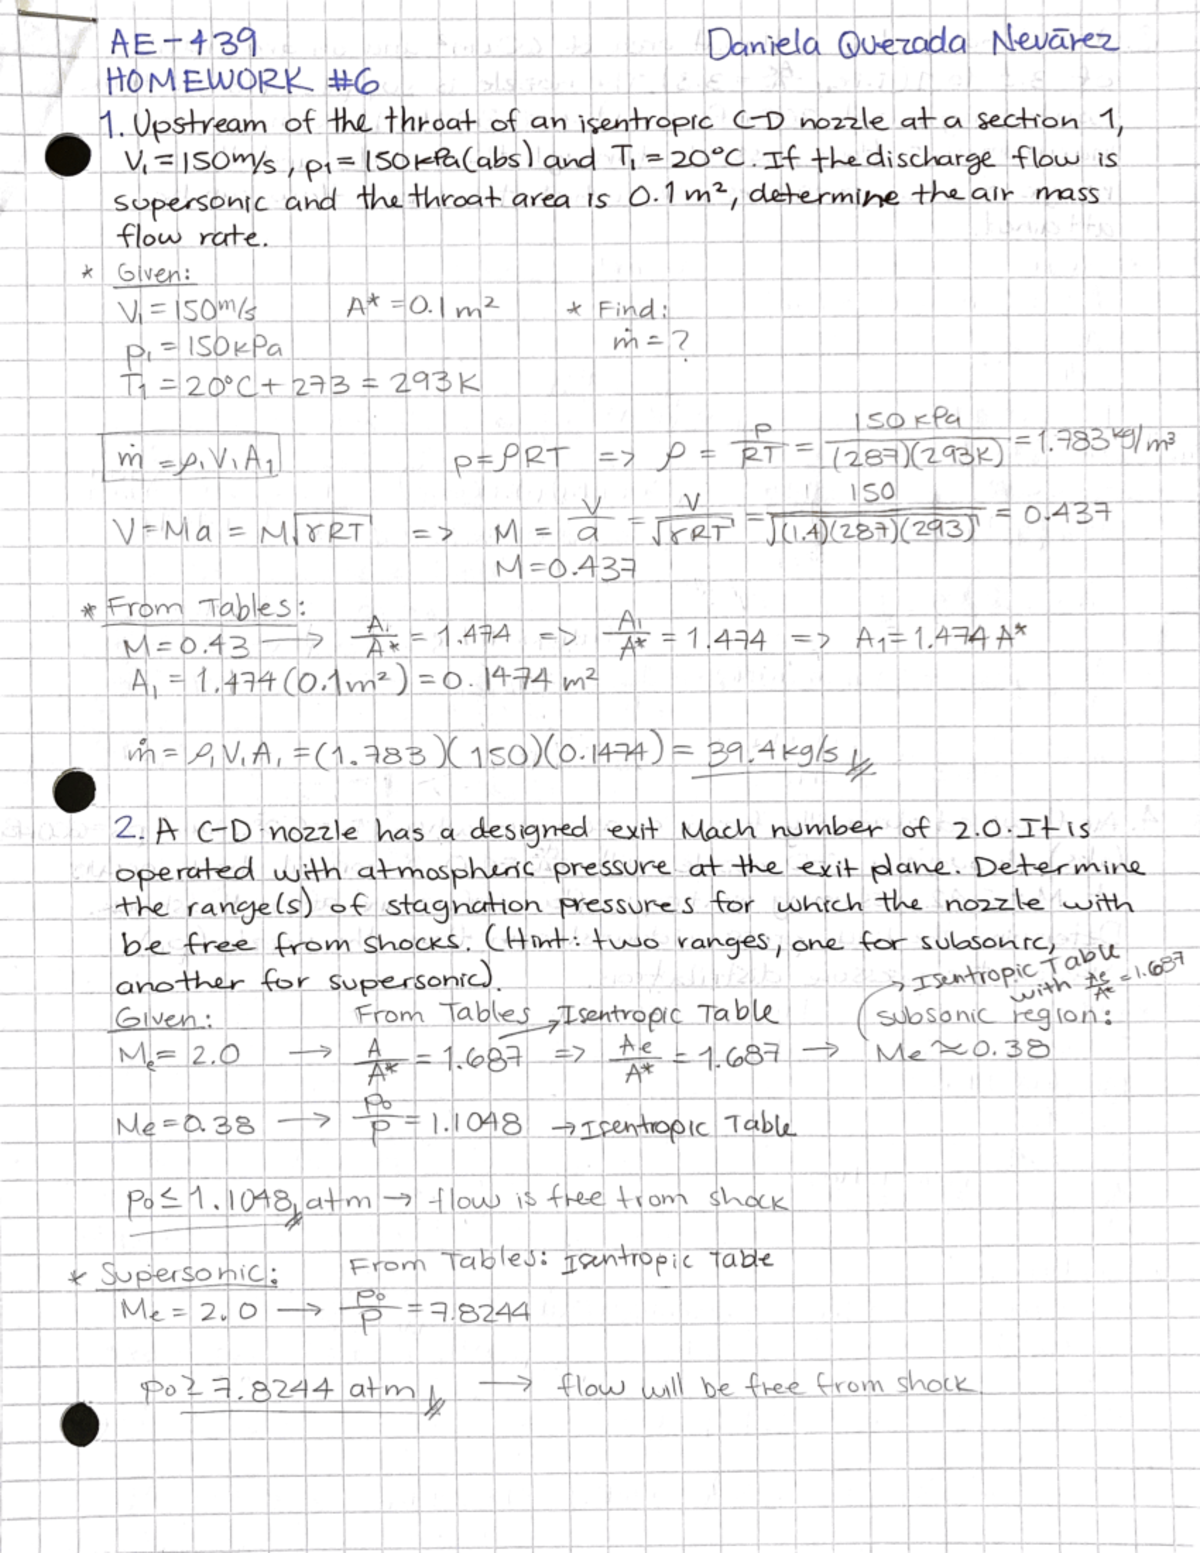 AE-439
Daniela Quezada Nevárez
HOMEWORK #6
1. Upstream of the throat of an isentropic C-D nozzle at a section 1,
V₁ = 150m/s, p₁ = 150kPa(abs) and T₁ = 20°C. If the discharge flow is
supersonic and the throat area is 0.1m², determine the air mass
flow rate.
* Given:
V₁ = 150m/s A* = 0.1m² * Find:
p₁ = 150kPa ṁ = ?
T₁ = 20°C + 273 = 293K
ṁ = ρ₁V₁A₁ p = ρRT => ρ = p/RT = 150kPa/(287)(293K) = 1.783 kg/m³
V = Ma = M√γRT => M = V/a = V/√γRT = 150/√(1.4)(287)(293) = 0.437
M = 0.437
* From Tables:
M = 0.43 → A₁/A* = 1.474 => A₁/A* = 1.474 => A₁ = 1.474A*
A₁ = 1.474(0.1m²) = 0.1474m²
ṁ = ρ₁V₁A₁ = (1.783)(150)(0.1474) = 39.4kg/s
2. A C-D nozzle has a designed exit Mach number of 2.0. It is
operated with atmospheric pressure at the exit plane. Determine
the range(s) of stagnation pressures for which the nozzle with
be free from shocks. (Hint: two ranges, one for subsonic,
another for supersonic).
→ Isentropic Table
with Ae/A* = 1.687
Given: From Tables → Isentropic Table subsonic region:
Me = 2.0 → A/A* = 1.687 => Ae/A* = 1.687 → Me ≈ 0.38
Me = 0.38 → po/p = 1.1048 → Isentropic Table
po ≤ 1.1048 atm → flow is free from shock
* Supersonic: From Tables: Isentropic Table
Me = 2.0 → po/p = 7.8244
po ≥ 7.8244 atm → flow will be free from shock